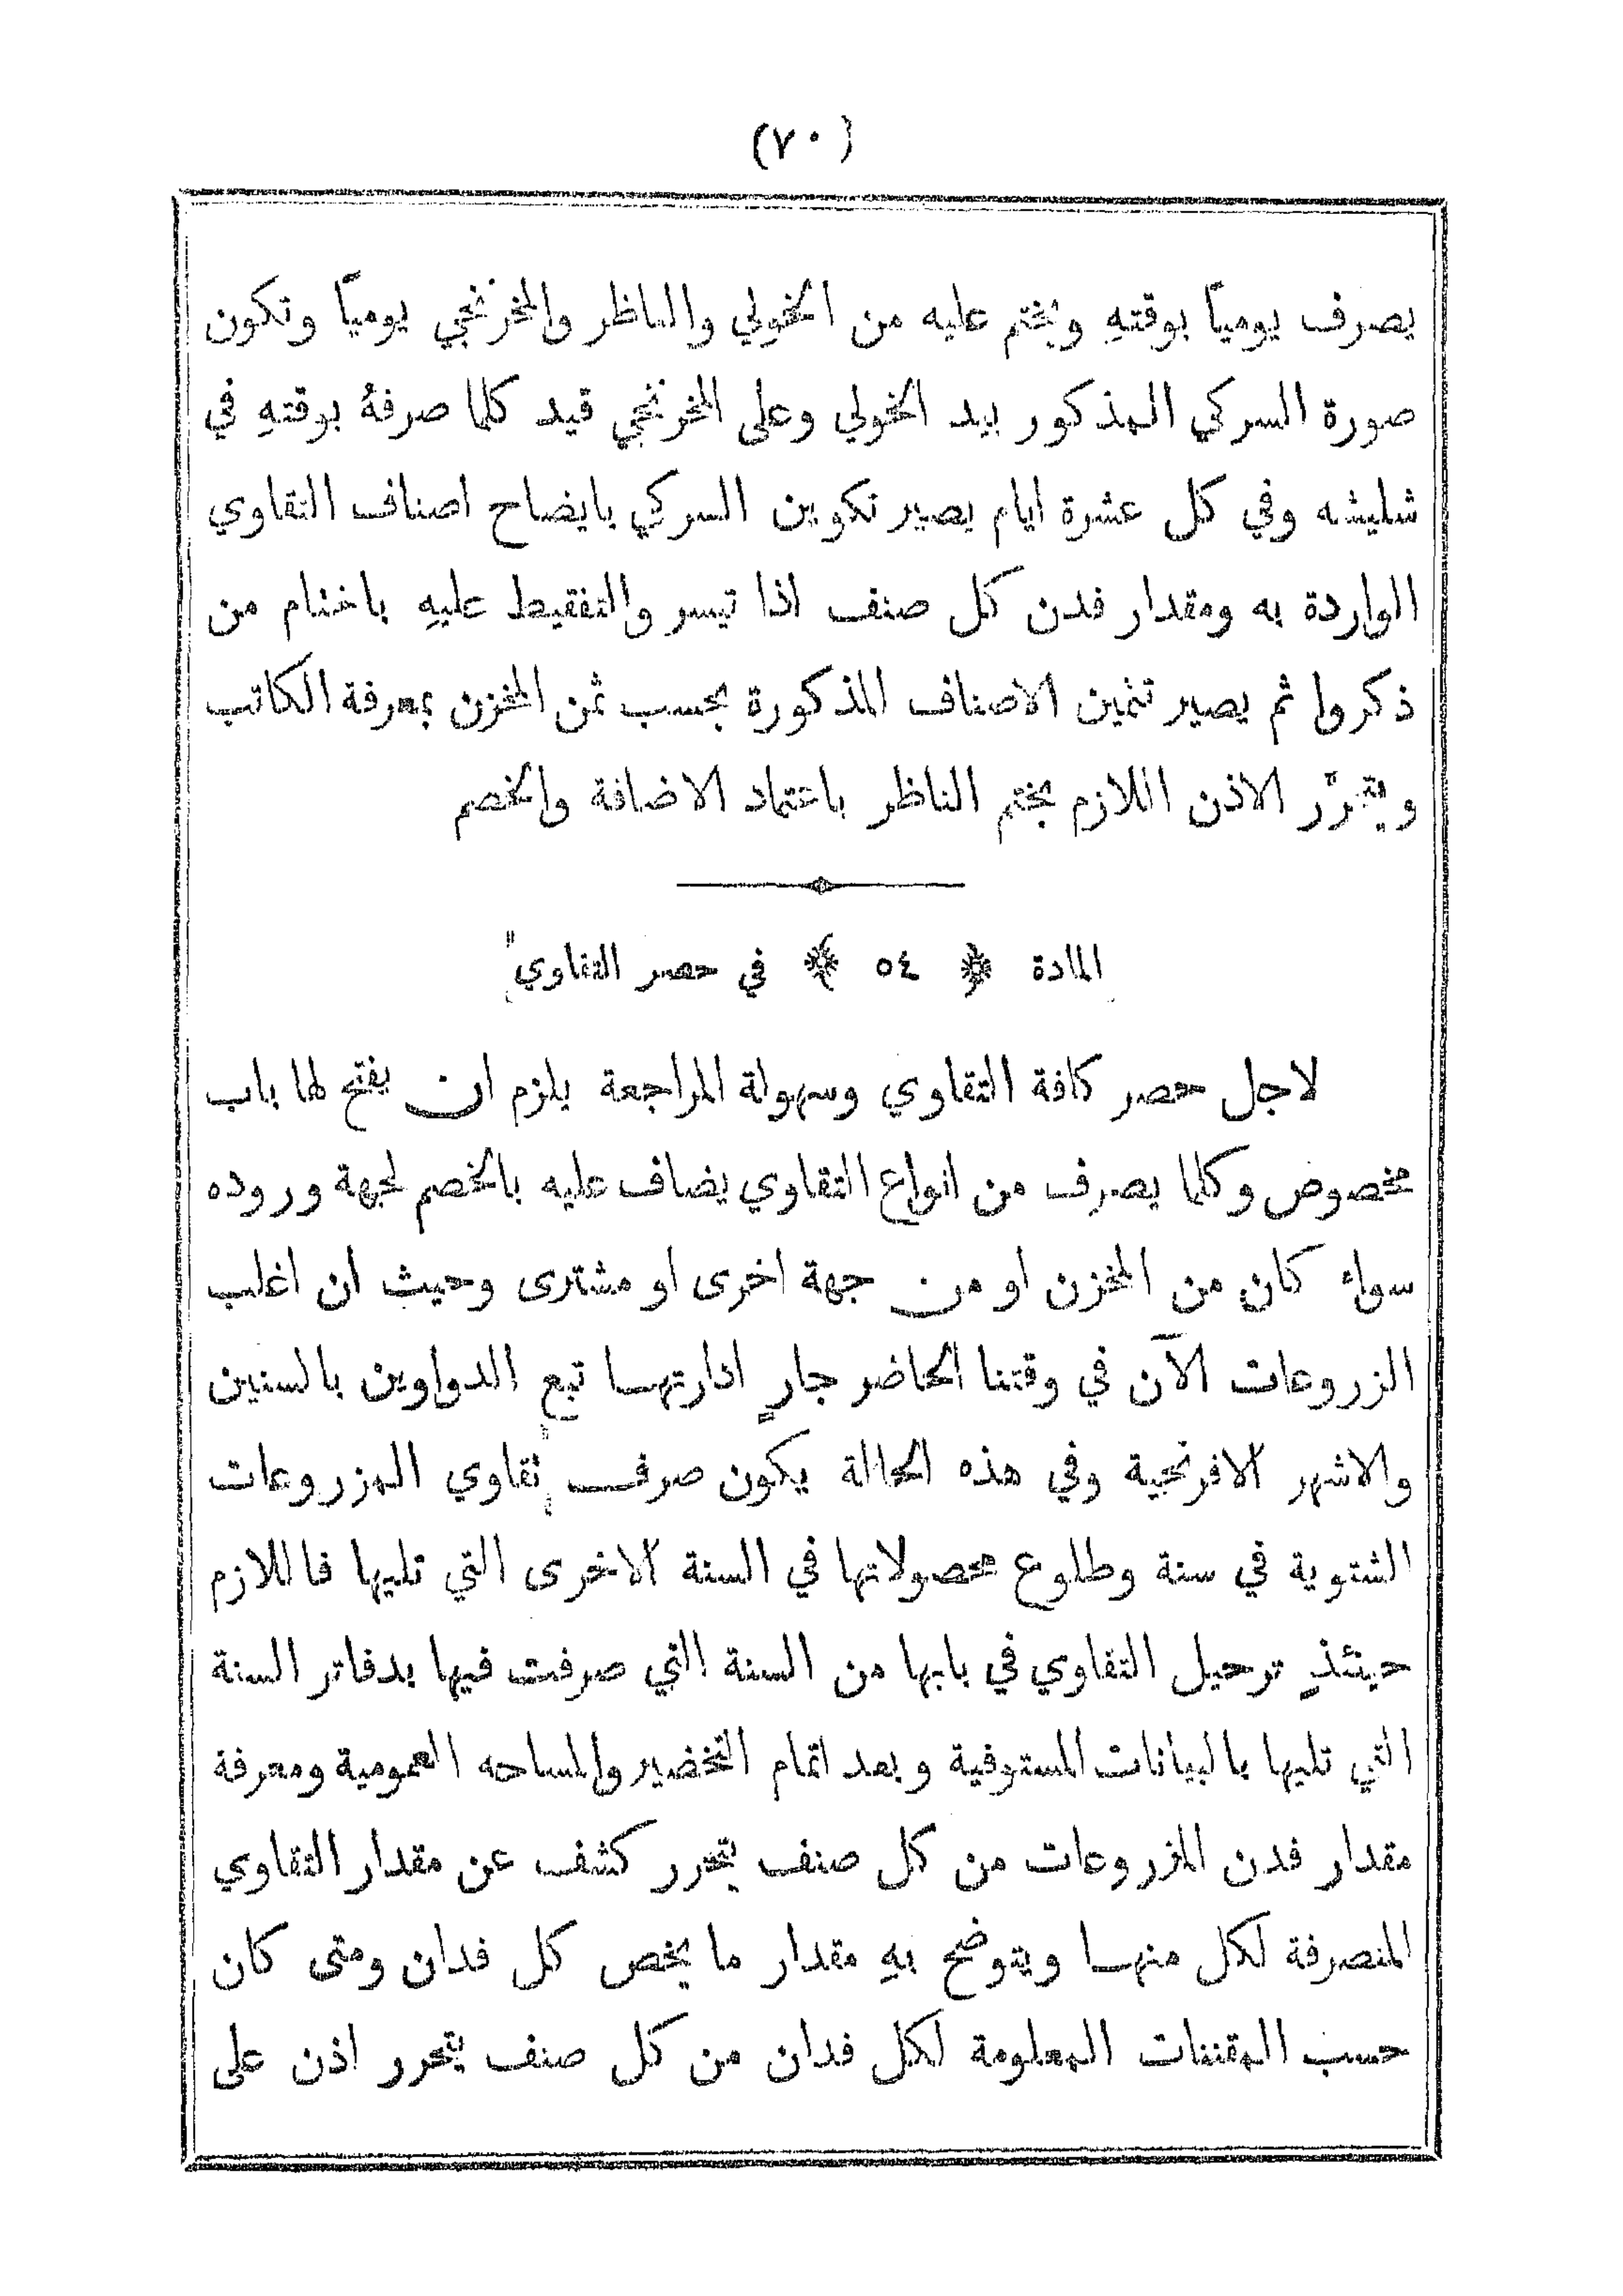 (٧٠)
يصرف يومياً بوقتهِ ويختم عليه من الخولي والناظر والمخزنجي يومياً وتكون
صورة السركي المذكور بيد الخولي وعلى المخزنجي قيد كلما صرفهُ بوقتهِ في
شليشه وفي كل عشرة ايام يصير تكوين السركي بايضاح اصناف التقاوي
الواردة به ومقدار فدن كل صنف اذا تيسر والتفقيط عليهِ باختام من
ذكروا ثم يصير تثمين الاصناف المذكورة بحسب ثمن المخزن بمعرفة الكاتب
ويتحرّر الاذن اللازم بختم الناظر باعتماد الاضافة والخصم
المادة ﴿ ٥٤ ﴾ في حصر التقاوي
لاجل حصر كافة التقاوي وسهولة المراجعة يلزم ان يفتح لها باب
مخصوص وكلما يصرف من انواع التقاوي يضاف عليه بالخصم لجهة وروده
سواء كان من المخزن او من جهة اخرى او مشترى وحيث ان اغلب
الزروعات الآن في وقتنا الحاضر جارٍ ادارتها تبع الدواوين بالسنين
والاشهر الافرنجية وفي هذه الحالة يكون صرف تقاوي المزروعات
الشتوية في سنة وطلوع محصولاتها في السنة الاخرى التي تليها فاللازم
حينئذٍ ترحيل التقاوي في بابها من السنة التي صرفت فيها بدفاتر السنة
التي تليها بالبيانات المستوفية وبعد اتمام التخضير والمساحه العمومية ومعرفة
مقدار فدن المزروعات من كل صنف يتحرر كشف عن مقدار التقاوي
المنصرفة لكل منها ويتوضح بهِ مقدار ما يخص كل فدان ومتى كان
حسب المقننات المعلومة لكل فدان من كل صنف يتحرر اذن على